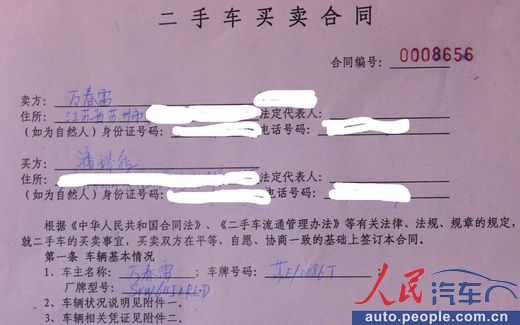 二手车买卖合同
合同编号: 0008656
卖方: 万春雷
住所: 江苏省苏州市 法定代表人:
(如为自然人) 身份证号码: 电话号码:
买方:
住所: 法定代表人:
(如为自然人) 身份证号码: 电话号码:
根据《中华人民共和国合同法》、《二手车流通管理办法》等有关法律、法规、规章的规定,
就二手车的买卖事宜, 买卖双方在平等、自愿、协商一致的基础上签订本合同。
第一条 车辆基本情况
1、车主名称: 万春雷 车牌号码:
厂牌型号:
2、车辆状况说明见附件一。
3、车辆相关凭证见附件二。
人民汽车
auto.people.com.cn